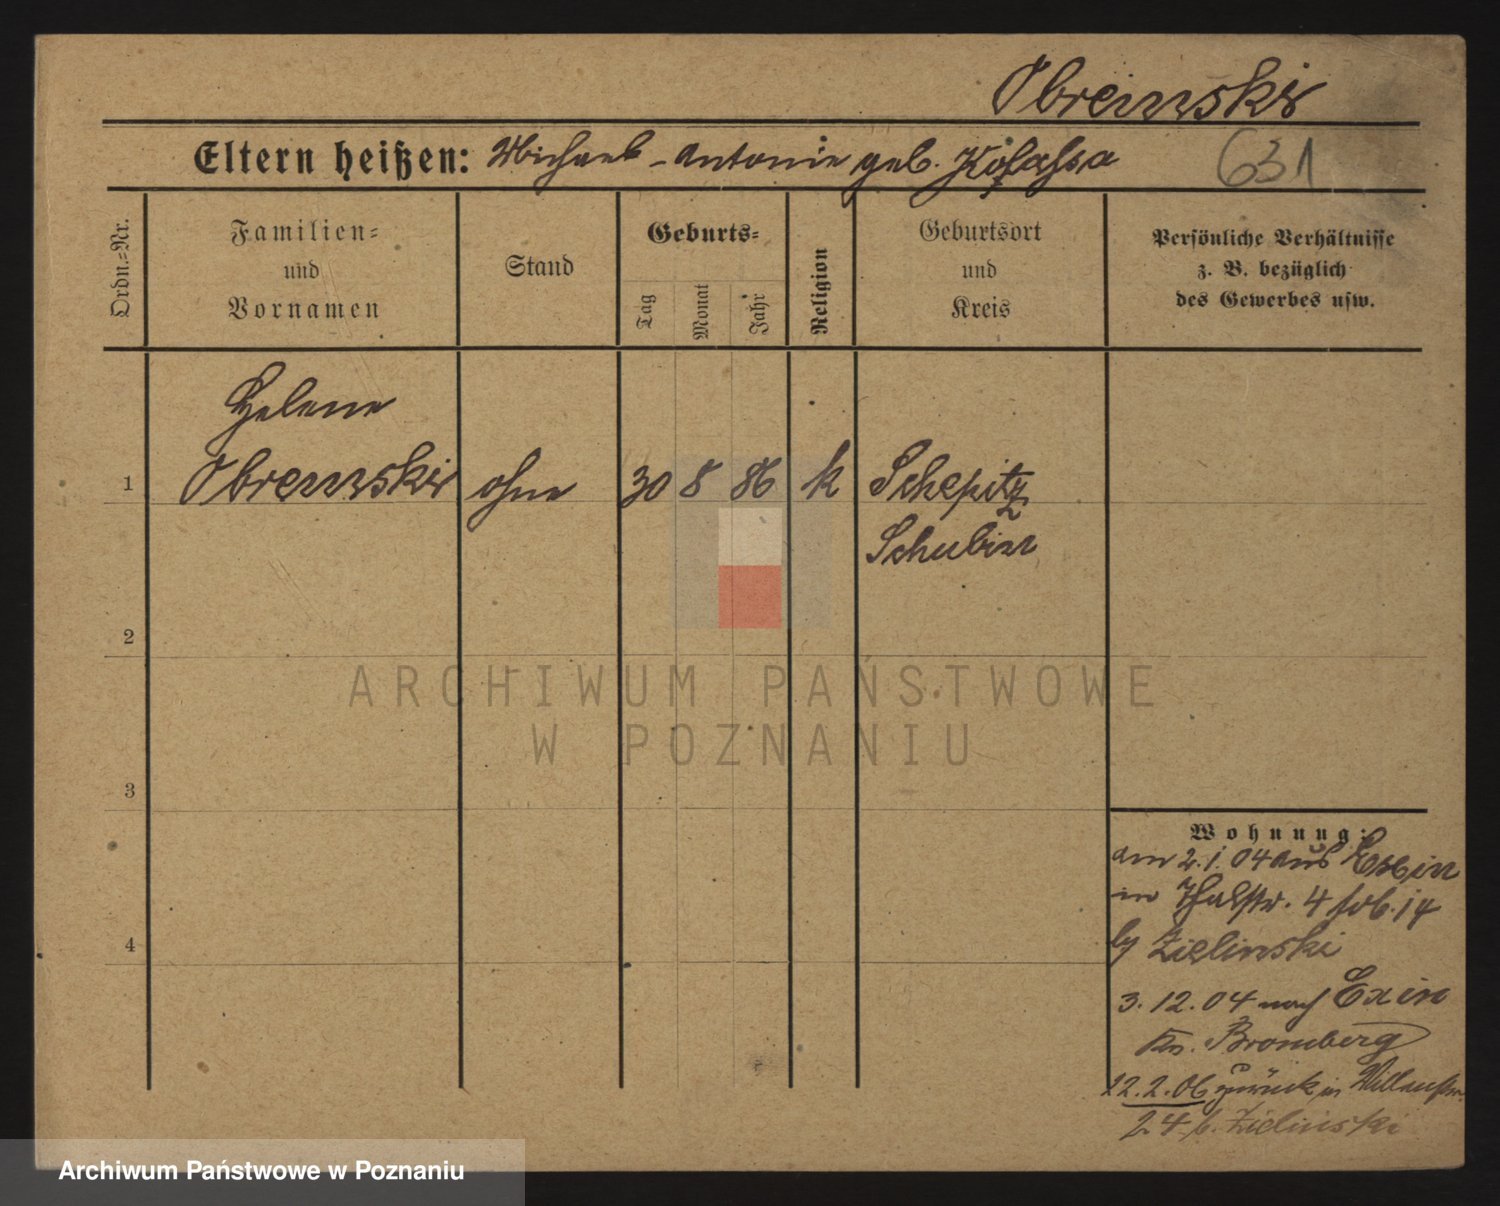 Obremski
Eltern heißen: Michael - Antonie geb. Kołassa
631
Ordn.-Nr.
Familien-
und
Vornamen
Stand
Geburts-
Tag
Monat
Jahr
Religion
Geburtsort
und
Kreis
Persönliche Verhältnisse
z. B. bezüglich
des Gewerbes usw.
Helene
1 Obremski ohne 30 8 86 k Schepitz
Schubin
2
3
4
Wohnung:
am 2.1.04 aus Exin
in Thalstr. 4 14
by Zielinski
3.12.04 nach Exin
Krs. Bromberg
12.2.06 zurück in
24 b. Zielinski
ARCHIWUM PAŃSTWOWE
W POZNANIU
Archiwum Państwowe w Poznaniu